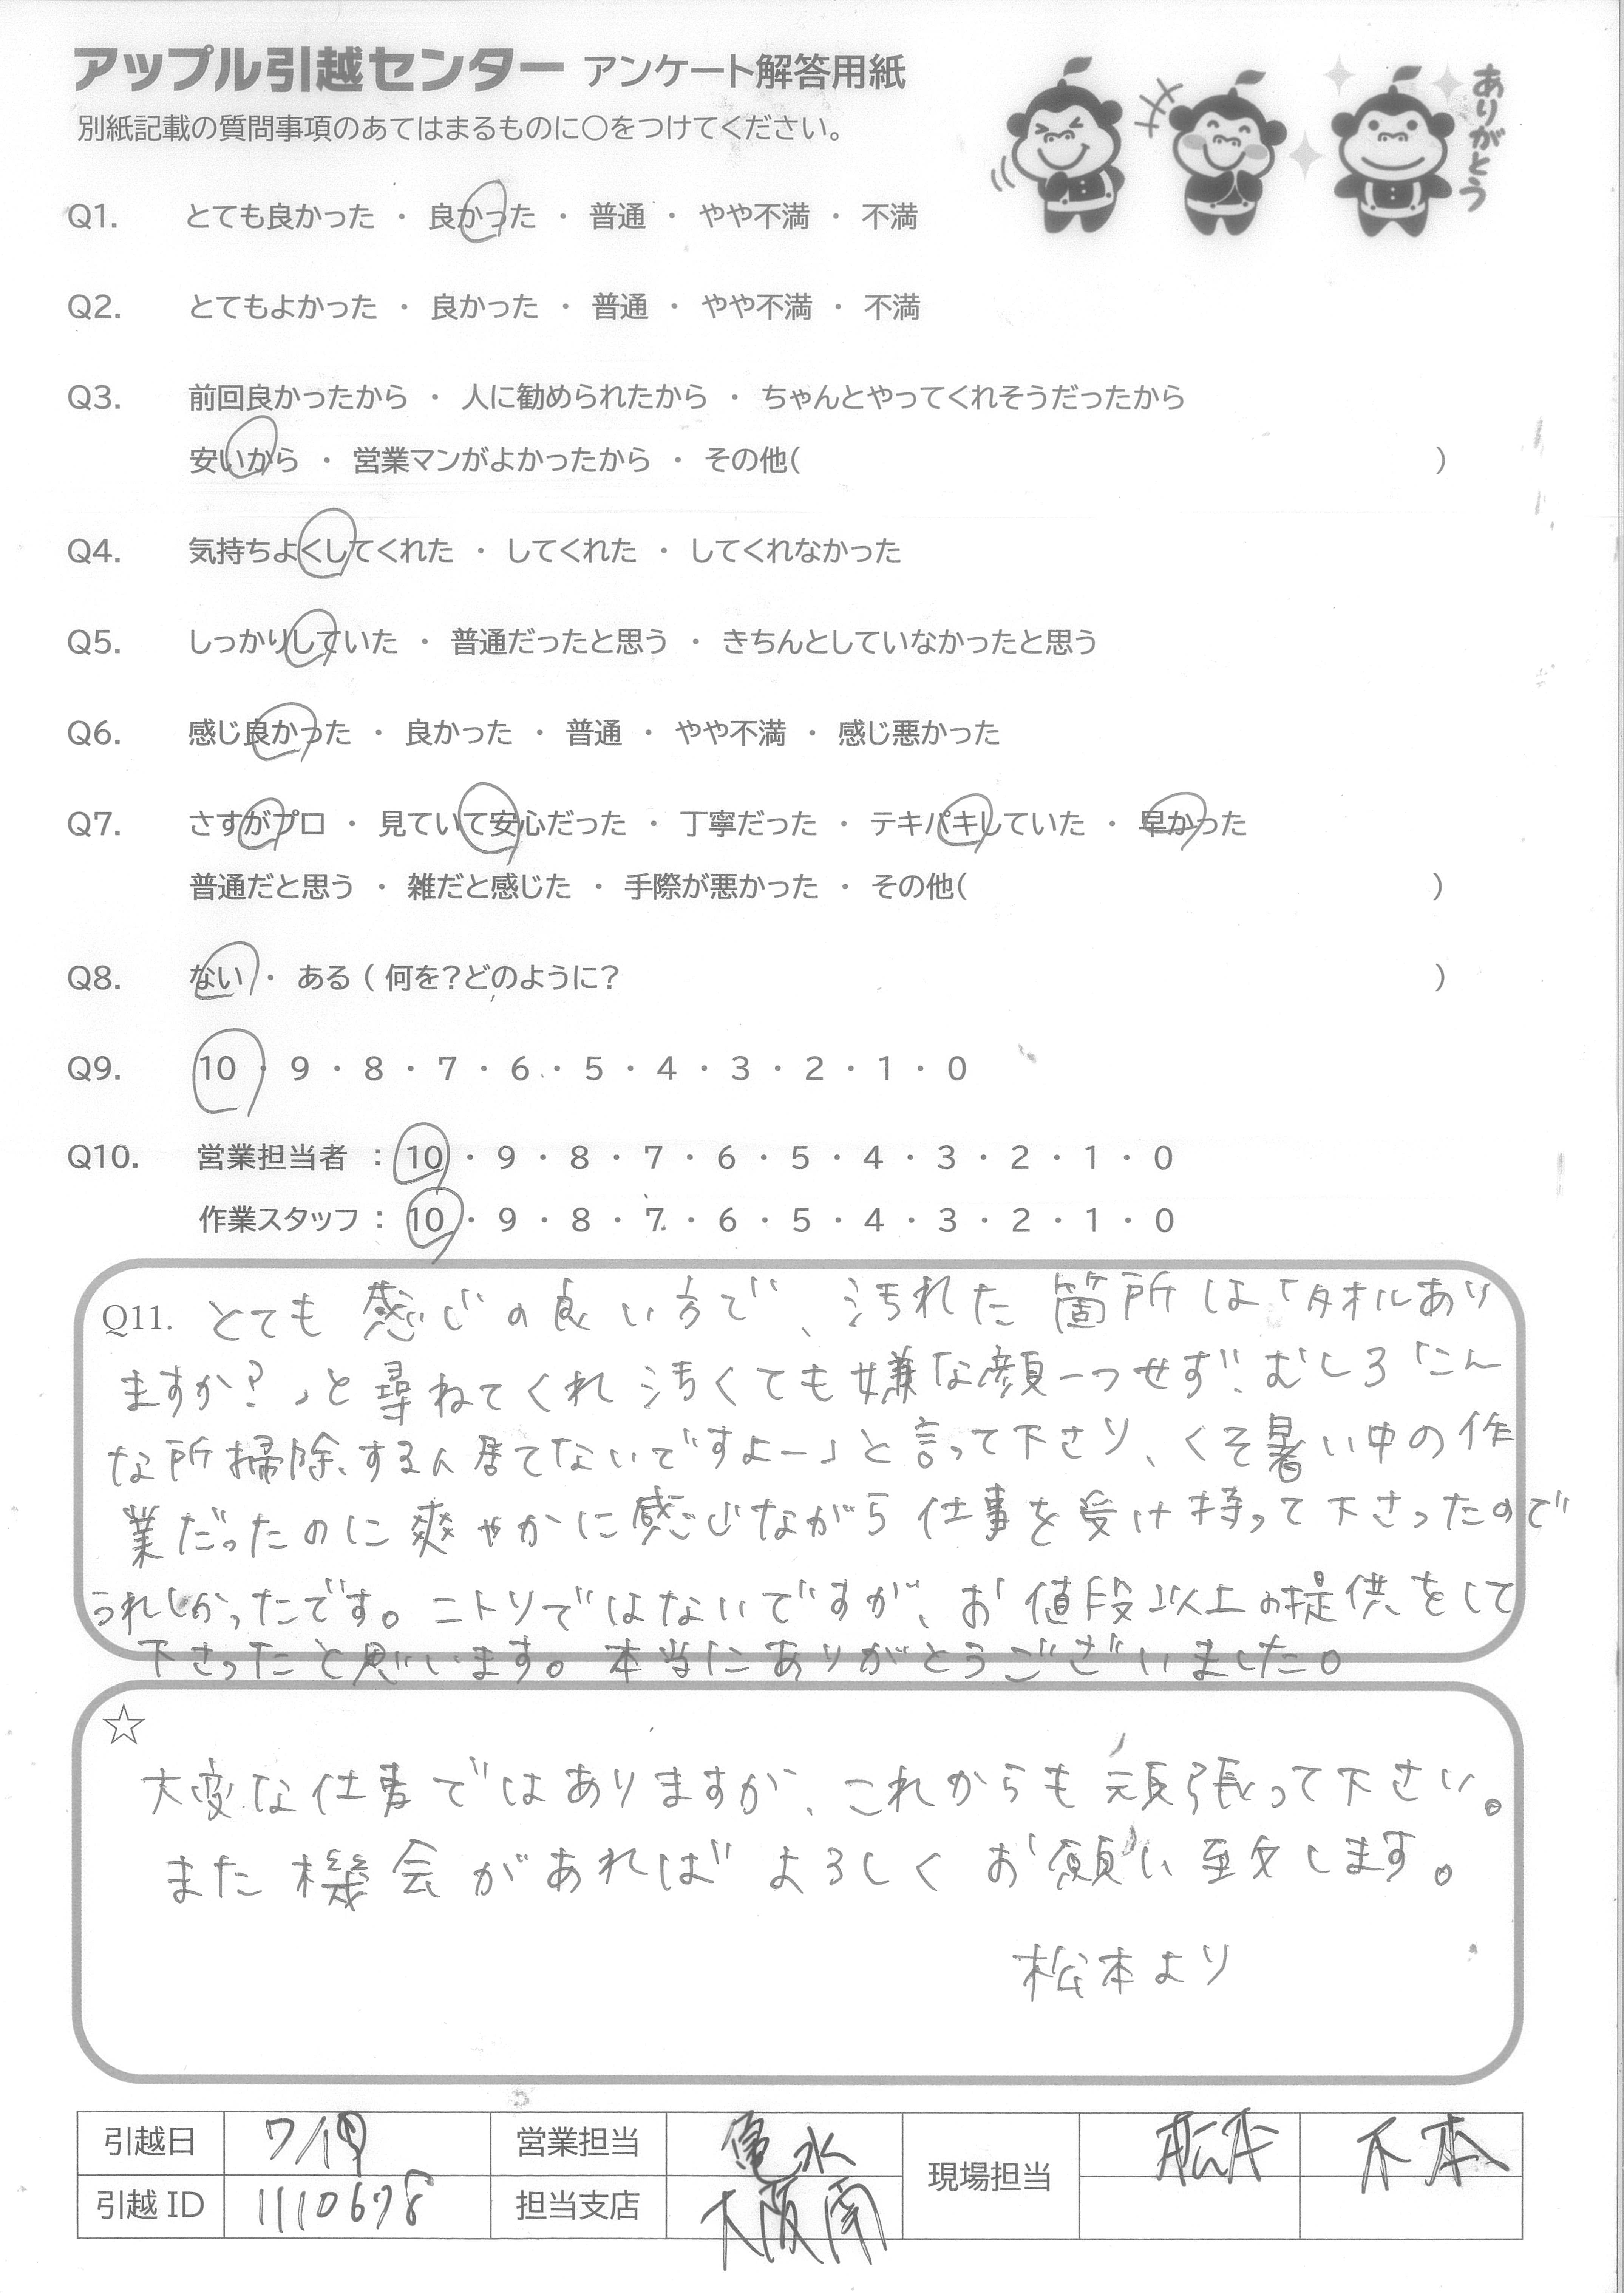 アップル引越センター アンケート解答用紙
別紙記載の質問事項のあてはまるものに○をつけてください。
ありがとう
Q1. とても良かった ・ 良かった ・ 普通 ・ やや不満 ・ 不満
Q2. とてもよかった ・ 良かった ・ 普通 ・ やや不満 ・ 不満
Q3. 前回良かったから ・ 人に勧められたから ・ ちゃんとやってくれそうだったから
安いから ・ 営業マンがよかったから ・ その他( )
Q4. 気持ちよくしてくれた ・ してくれた ・ してくれなかった
Q5. しっかりしていた ・ 普通だったと思う ・ きちんとしていなかったと思う
Q6. 感じ良かった ・ 良かった ・ 普通 ・ やや不満 ・ 感じ悪かった
Q7. さすがプロ ・ 見ていて安心だった ・ 丁寧だった ・ テキパキしていた ・ 早かった
普通だと思う ・ 雑だと感じた ・ 手際が悪かった ・ その他( )
Q8. ない ・ ある ( 何を?どのように? )
Q9. 10 ・ 9 ・ 8 ・ 7 ・ 6 ・ 5 ・ 4 ・ 3 ・ 2 ・ 1 ・ 0
Q10. 営業担当者 : 10 ・ 9 ・ 8 ・ 7 ・ 6 ・ 5 ・ 4 ・ 3 ・ 2 ・ 1 ・ 0
作業スタッフ : 10 ・ 9 ・ 8 ・ 7 ・ 6 ・ 5 ・ 4 ・ 3 ・ 2 ・ 1 ・ 0
Q11. とても感じの良い方で、汚れた箇所は「タオルあり
ますか?」と尋ねてくれ汚くても嫌な顔一つせず、むしろ「こん
な所掃除する人居てないですよー」と言って下さり、くそ暑い中の作
業だったのに爽やかに感じながら仕事を受け持って下さったので
うれしかったです。ニトリではないですが、お値段以上の提供をして
下さったと思います。本当にありがとうございました。
☆
大変な仕事ではありますが、これからも頑張って下さい。
また機会があればよろしくお願い致します。
松本より
引越日 7/ 営業担当 亀水 現場担当 松本 本
引越ID 1110678 担当支店 大阪南